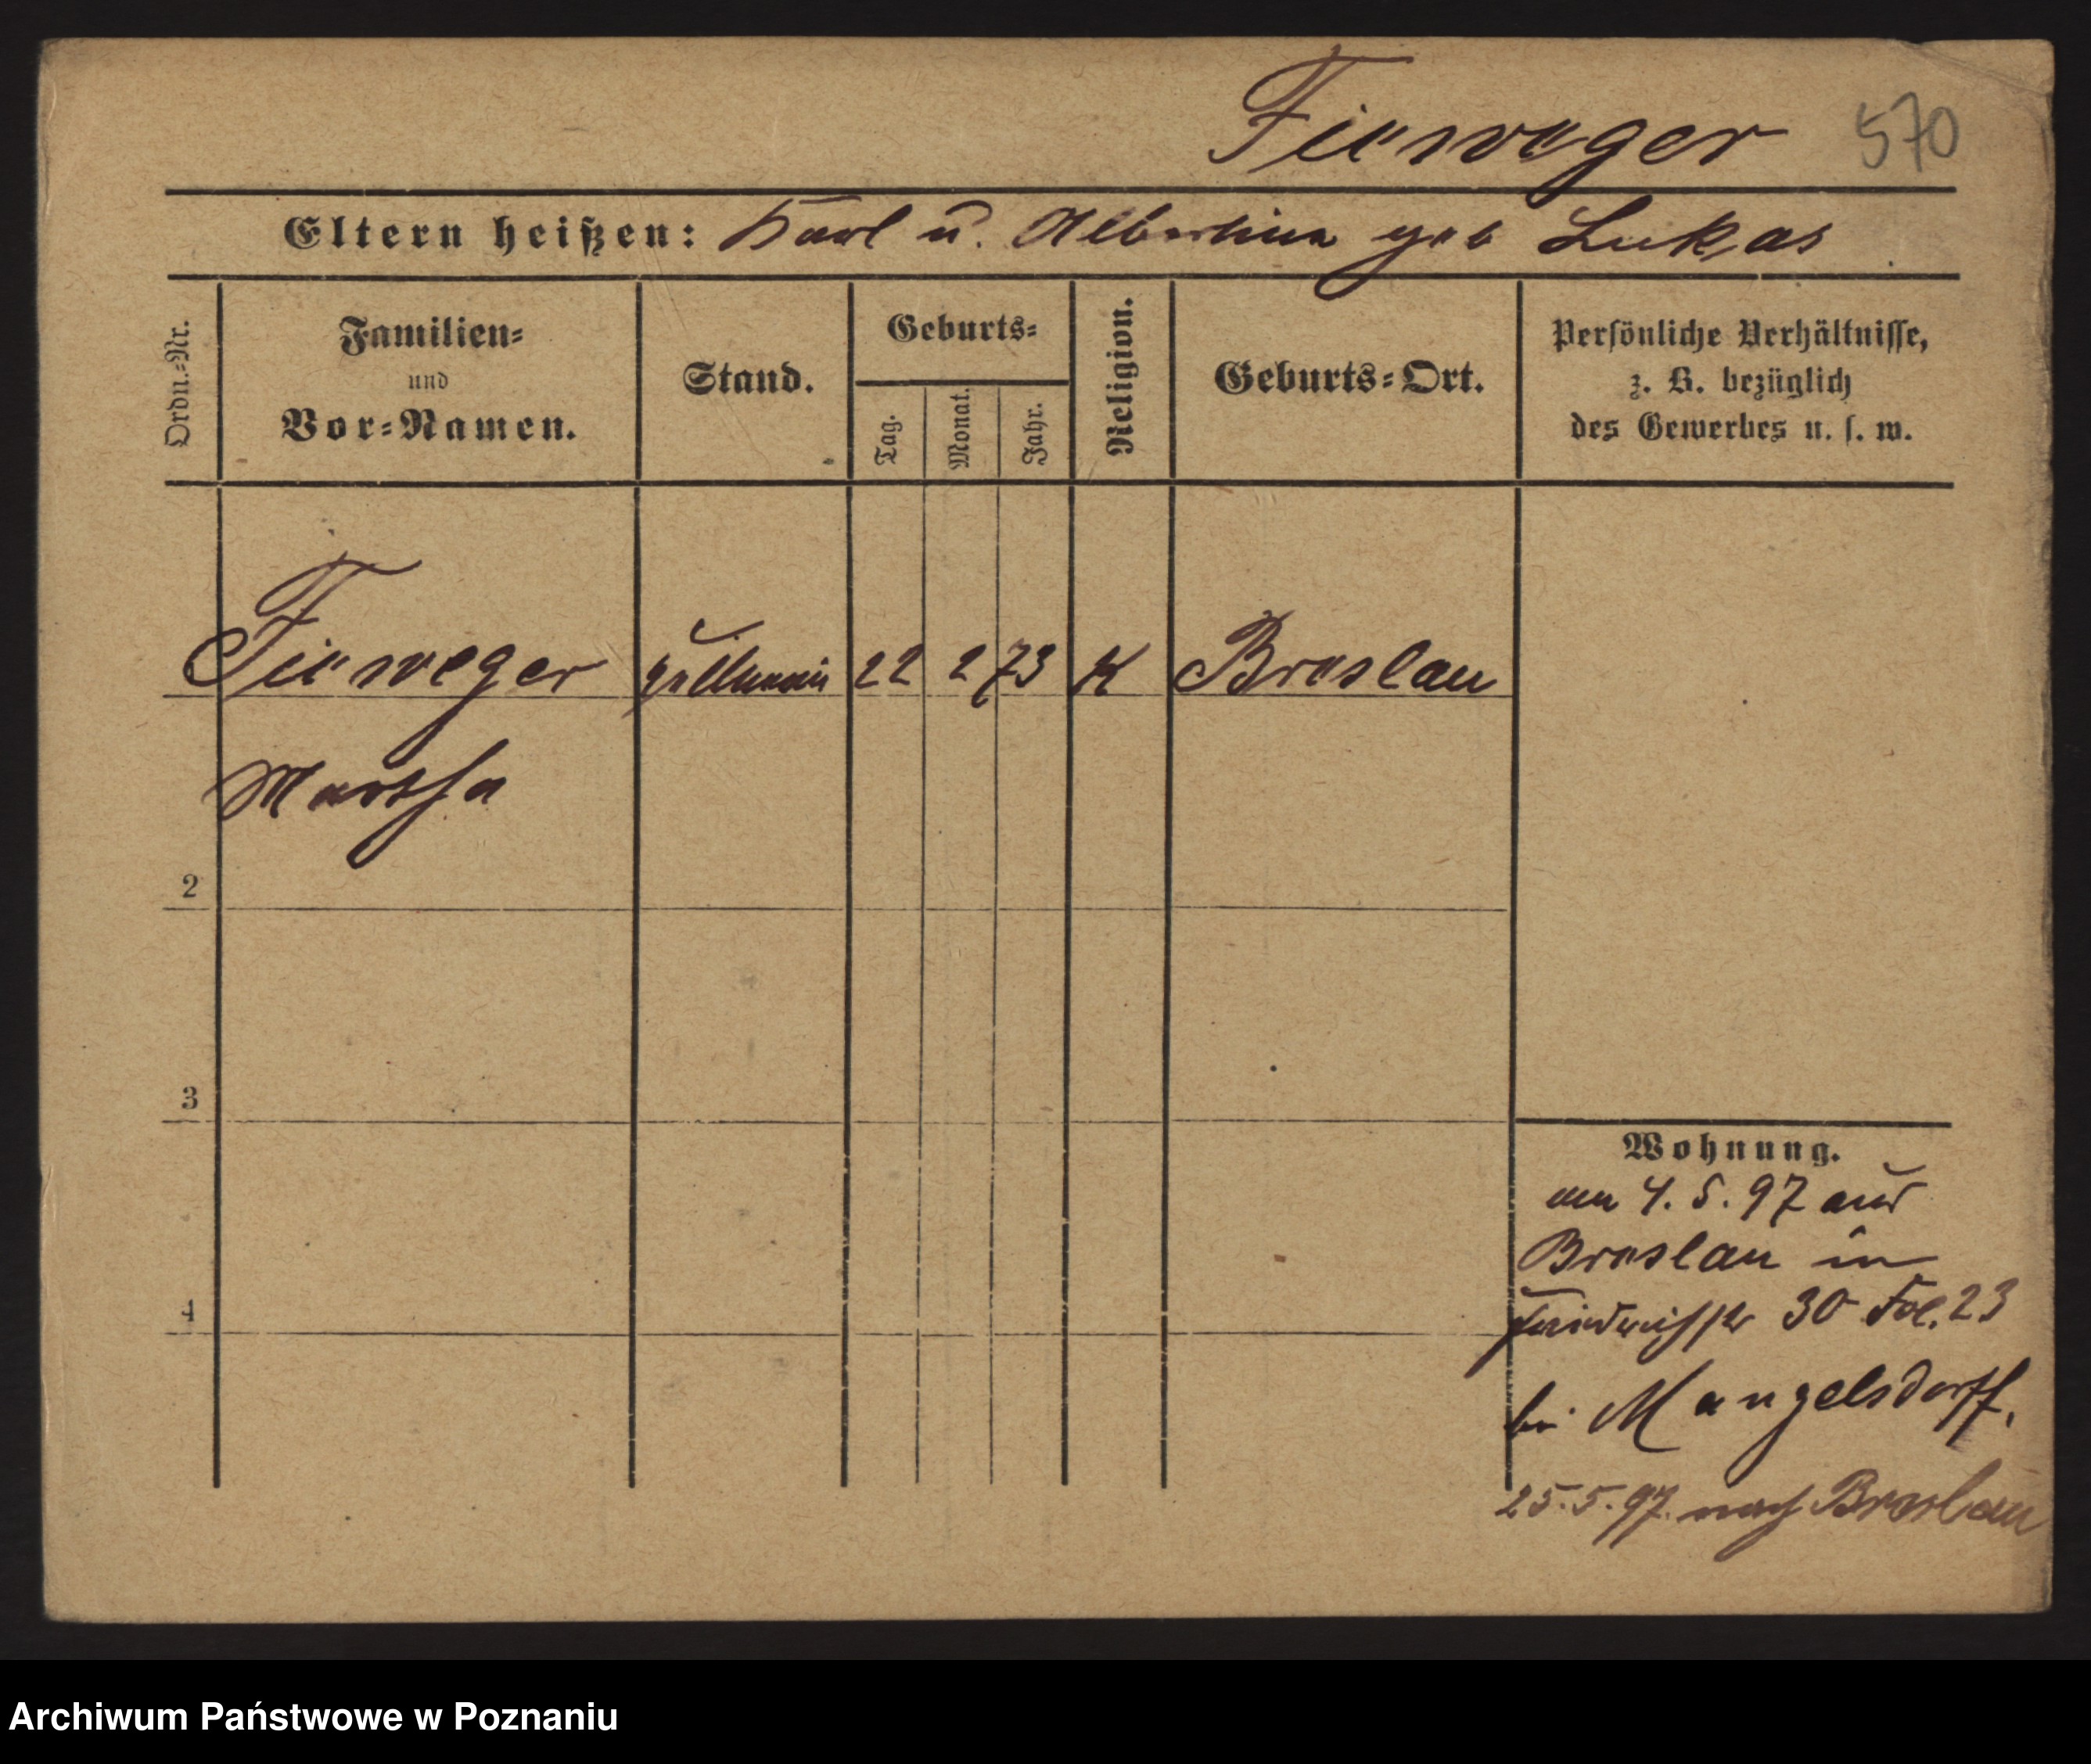 Fierweger 570
Eltern heißen: Karl u. Albertine geb Lukas
Ordn.-Nr.
Familien-
und
Vor-Namen.
Stand.
Geburts-
Tag.
Monat.
Jahr.
Religion.
Geburts-Ort.
Persönliche Verhältnisse,
z. B. bezüglich
des Gewerbes u. s. w.
Fierweger 22 2 73 K Breslau
Martha
2
3
4
Wohnung.
am 4. 5. 97 aus
Breslau in
30 Fol. 23
bei Mangelsdorff,
25. 5. 97. nach Breslau
Archiwum Państwowe w Poznaniu